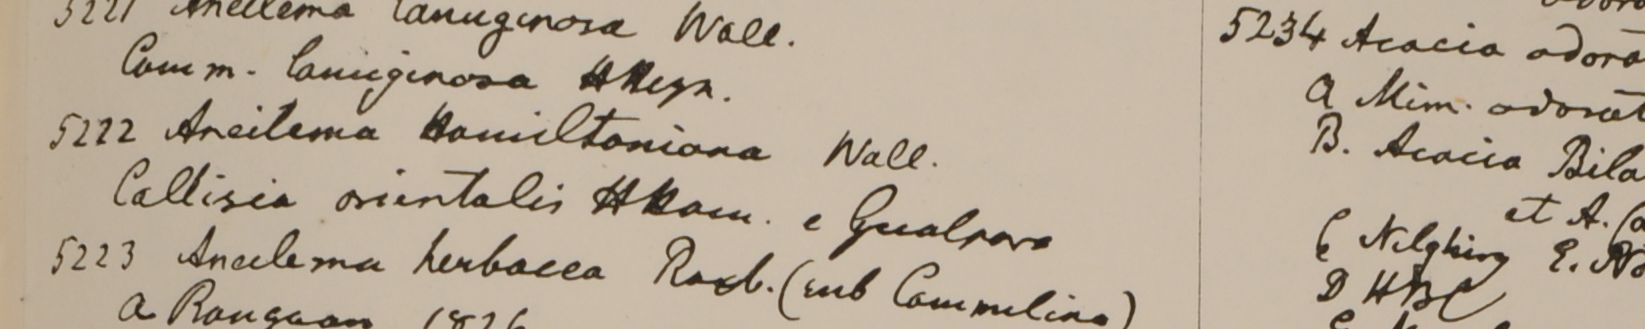 5221 Aneilema lanuginosa Wall.
Comm. lanuginosa HHeyn.
5222 Aneilema Hamiltoniana Wall.
Callisia orientalis HHam. e Gualpara
5223 Aneilema herbacea Roxb. (sub Commelina)
a Rangoon 1826
5234 Acacia odora
a Mim. odorat
B. Acacia Bila
et A.
C Nilghiry E. No
D HBC